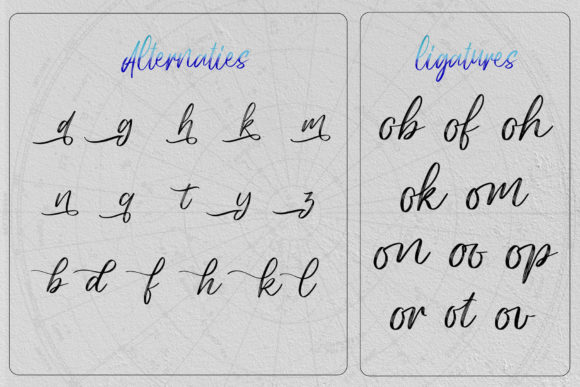 Alternaties
d g h k m
n q t y z
b d f h k l
ligatures
ob of oh
ok om
on oo op
or ot ov